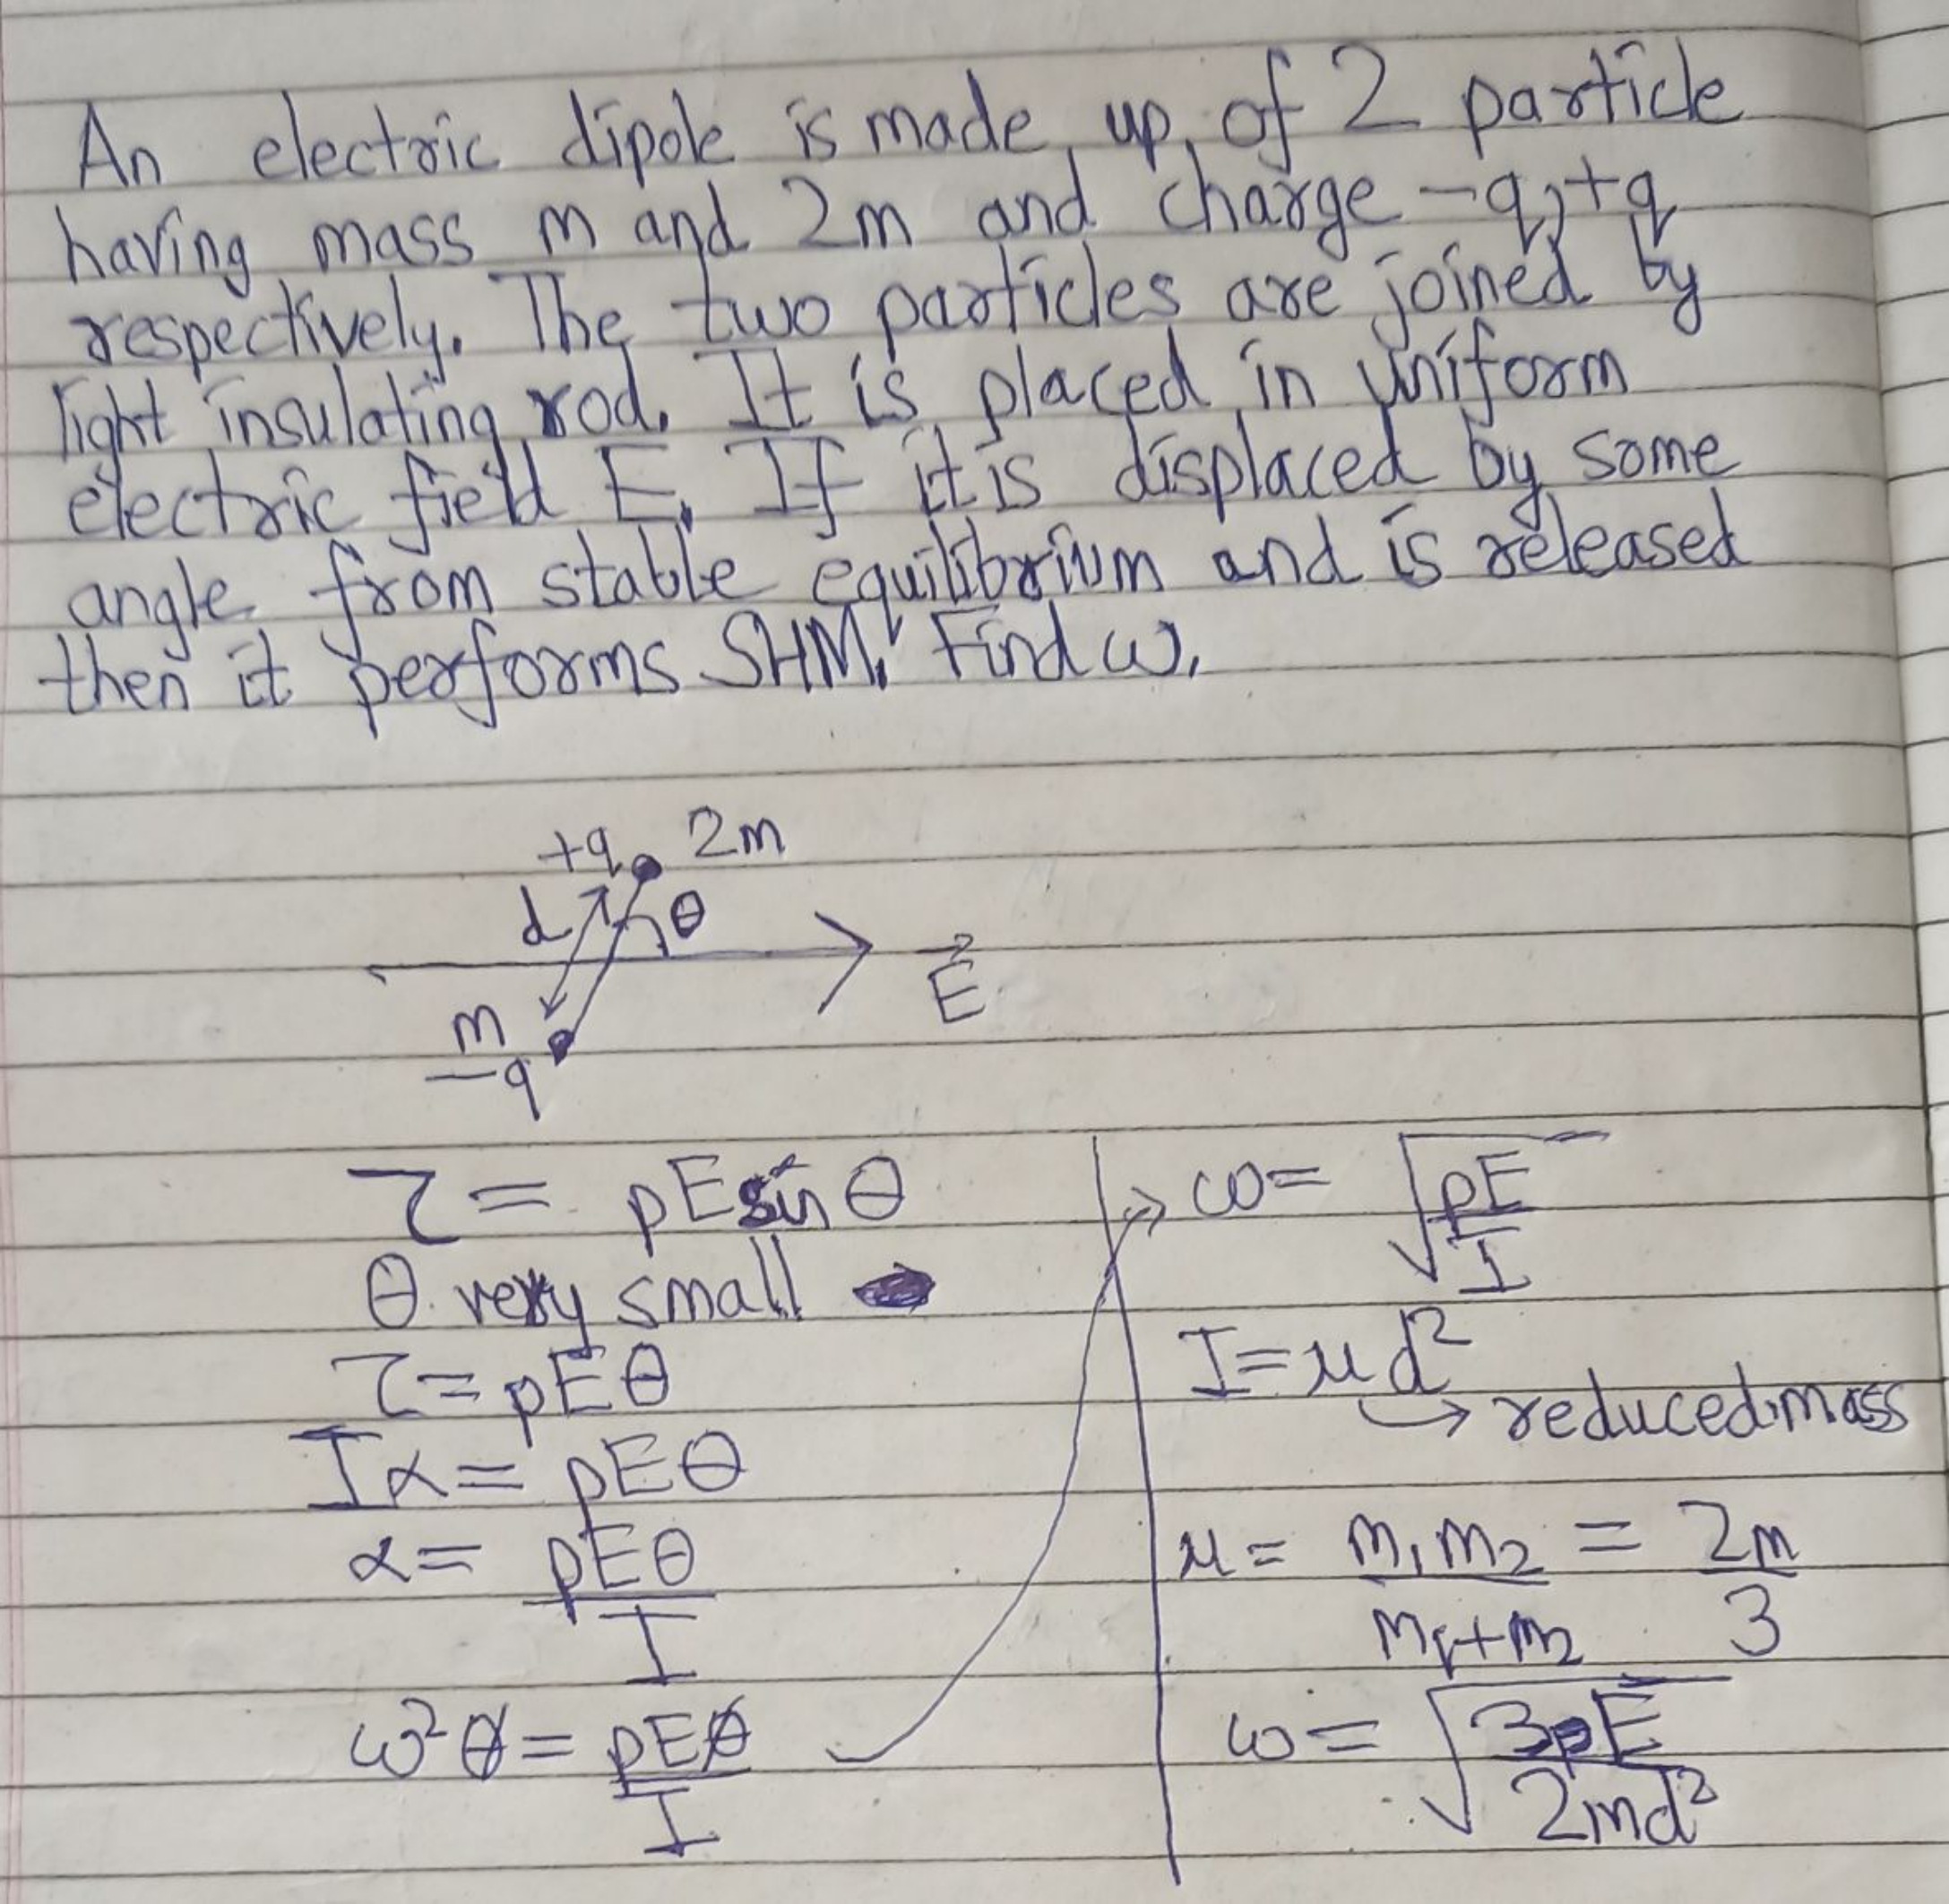 An electric dipole is made up of 2 particle
having mass m and 2m and charge -q, +q
respectively. The two particles are joined by
light insulating rod. It is placed in uniform
electric field E. If it is displaced by some
angle from stable equilibrium and is released
then it performs SHM. Find ω.
+q 2m
d θ
E⃗
m
-q
τ = pE sin θ
θ very small
τ = pEθ
Iα = pEθ
α = pEθ/I
ω²θ = pEθ/I
→ ω = √(pE/I)
I = μd²
↳ reduced mass
μ = m₁m₂/(m₁+m₂) = 2m/3
ω = √(3pE/2md²)